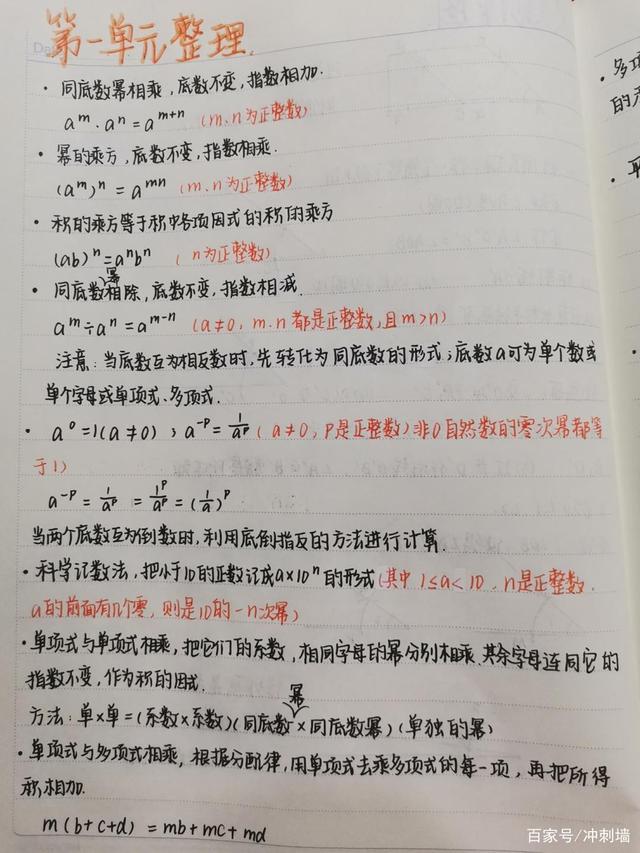 第一单元整理.
· 同底数幂相乘，底数不变，指数相加.
aᵐ·aⁿ=aᵐ⁺ⁿ (m、n为正整数)
· 幂的乘方，底数不变，指数相乘.
(aᵐ)ⁿ = aᵐⁿ (m、n为正整数)
· 积的乘方等于积中各项因式的积的乘方
(ab)ⁿ=aⁿbⁿ ( n为正整数)
· 同底数幂相除，底数不变，指数相减.
aᵐ÷aⁿ=aᵐ⁻ⁿ (a≠0, m、n都是正整数，且m>n)
注意：当底数互为相反数时，先转化为同底数的形式；底数a可为单个数或
单个字母或单项式、多项式.
· a⁰=1(a≠0)；a⁻ᵖ=1/aᵖ (a≠0, P是正整数)非0自然数的零次幂都等
于1)
a⁻ᵖ = 1/aᵖ = 1ᵖ/aᵖ = (1/a)ᵖ
当两个底数互为倒数时，利用底倒指反的方法进行计算.
· 科学记数法，把小于10的正数记成a×10ⁿ的形式(其中1≤a<10，n是正整数.
a的前面有几个零，则是10的-n次幂)
· 单项式与单项式相乘，把它们的系数，相同字母的幂分别相乘.其余字母连同它的
指数不变，作为积的因式.
方法：单×单=(系数×系数)(同底数幂×同底数幂)(单独的幂)
· 单项式与多项式相乘，根据分配律，用单项式去乘多项式的每一项，再把所得
积相加.
m(b+c+d) = mb+mc+md
· 多项
的
百家号/冲刺墙